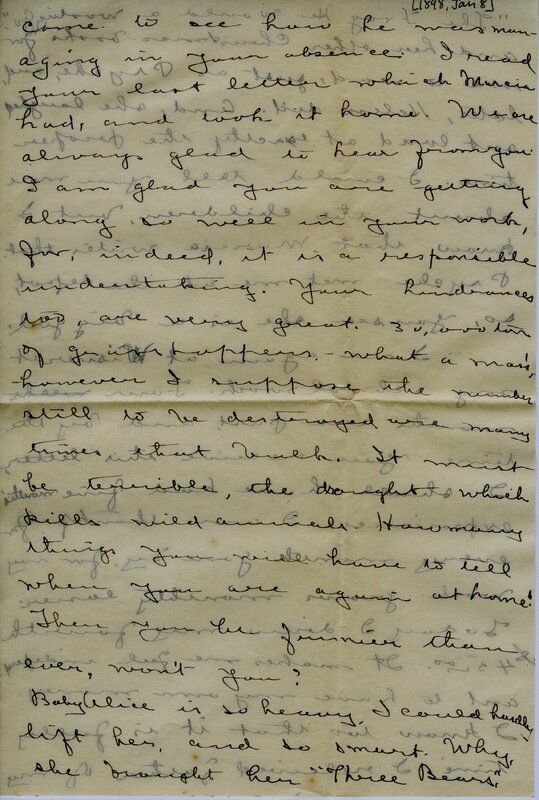 [1898, Jan 8]
came to see how he was man-
aging in your absence. I read
your last letter which Marcia
had, and took it home. We are
always glad to hear from you
I am glad you are getting
along so well in your work,
for, indeed, it is a responsible
undertaking. Your hindrances
too, are very great. 30,000 tons
of grasshoppers, - what a mass,
however I suppose the number
still to be destroyed are many
times that bulk. It must
be terrible, the drought which
kills wild animals. How many
things you will have to tell
when you are again at home!
Then you'll be funnier than
ever, won't you?
Baby Alice is so heavy, I could hardly
lift her, and so smart. Why,
she brought her "Three Bears",